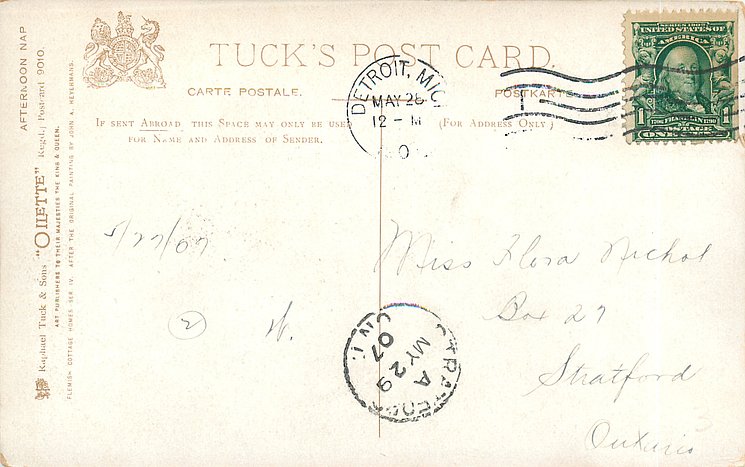 AFTERNOON NAP
Raphael Tuck & Sons "OILETTE" Regd.] Postcard 9010.
ART PUBLISHERS TO THEIR MAJESTIES THE KING & QUEEN.
FLEMISH COTTAGE HOMES SER. IV. AFTER THE ORIGINAL PAINTING BY JOHN A. HEYERMANS.
TUCK'S POST CARD.
CARTE POSTALE.
POSTKARTE
IF SENT ABROAD THIS SPACE MAY ONLY BE USED
FOR NAME AND ADDRESS OF SENDER.
(FOR ADDRESS ONLY)
DETROIT, MICH
MAY 28
12 - M
SERIES 1902
UNITED STATES OF
AMERICA
1706 FRANKLIN 1790
1 POSTAGE 1
ONE CENT
5/27/07
2
W.
Miss Flora Nichol
Box 27
Stratford
Ontario
STRATFORD
ONT.
A
MY 29
07